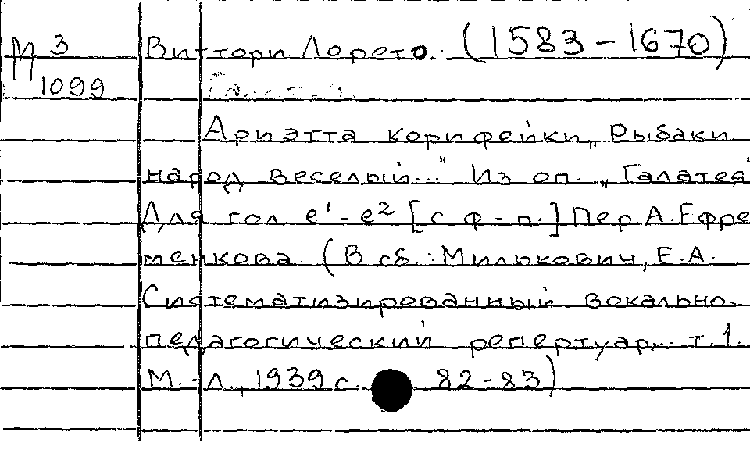 М 3 Виттори Лорето. (1583-1670)
1099
Ариэтта корифейки „Рыбаки
народ веселый..." Из оп. „Галатея"
Для гол e¹-e² [с ф-п.] Пер А. Ефре
менкова (В сб.: Милькович, Е.А.
Систематизированный вокально-
педагогический репертуар... т.1.
М.-Л., 1939 с. 82-83)